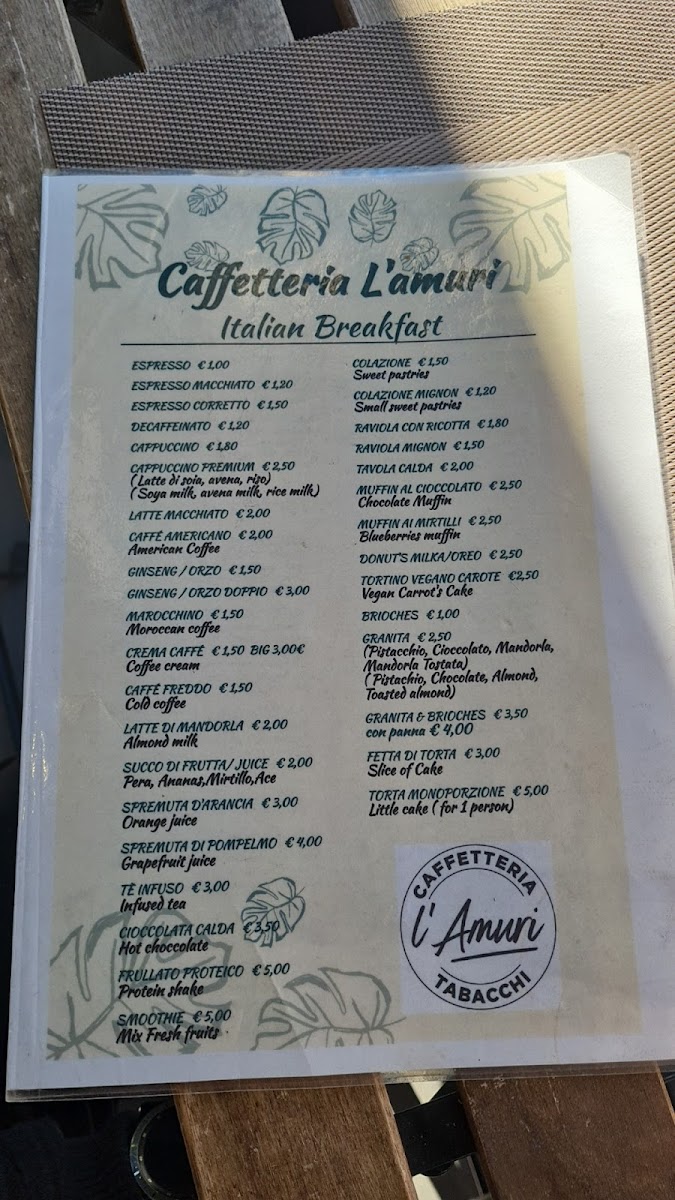 Caffetteria L'amuri
Italian Breakfast
ESPRESSO €1,00
ESPRESSO MACCHIATO €1,20
ESPRESSO CORRETTO €1,50
DECAFFEINATO €1,20
CAPPUCCINO €1,80
CAPPUCCINO PREMIUM €2,50
(Latte di soia, avena, riso)
(Soya milk, avena milk, rice milk)
LATTE MACCHIATO €2,00
CAFFÈ AMERICANO €2,00
American Coffee
GINSENG / ORZO €1,50
GINSENG / ORZO DOPPIO €3,00
MAROCCHINO €1,50
Moroccan coffee
CREMA CAFFÈ €1,50 BIG 3,00€
Coffee cream
CAFFÈ FREDDO €1,50
Cold coffee
LATTE DI MANDORLA €2,00
Almond milk
SUCCO DI FRUTTA/ JUICE €2,00
Pera, Ananas,Mirtillo,Ace
SPREMUTA D'ARANCIA €3,00
Orange juice
SPREMUTA DI POMPELMO €4,00
Grapefruit juice
TÈ INFUSO €3,00
Infused tea
CIOCCOLATA CALDA €3,50
Hot choccolate
FRULLATO PROTEICO €5,00
Protein shake
SMOOTHIE €5,00
Mix Fresh fruits
COLAZIONE €1,50
Sweet pastries
COLAZIONE MIGNON €1,20
Small sweet pastries
RAVIOLA CON RICOTTA €1,80
RAVIOLA MIGNON €1,50
TAVOLA CALDA €2,00
MUFFIN AL CIOCCOLATO €2,50
Chocolate Muffin
MUFFIN AI MIRTILLI €2,50
Blueberries muffin
DONUT'S MILKA/OREO €2,50
TORTINO VEGANO CAROTE €2,50
Vegan Carrot's Cake
BRIOCHES €1,00
GRANITA €2,50
(Pistacchio, Cioccolato, Mandorla,
Mandorla Tostata)
(Pistachio, Chocolate, Almond,
Toasted almond)
GRANITA & BRIOCHES €3,50
con panna €4,00
FETTA DI TORTA €3,00
Slice of Cake
TORTA MONOPORZIONE €5,00
Little cake ( for 1 person)
CAFFETTERIA
L'Amuri
TABACCHI